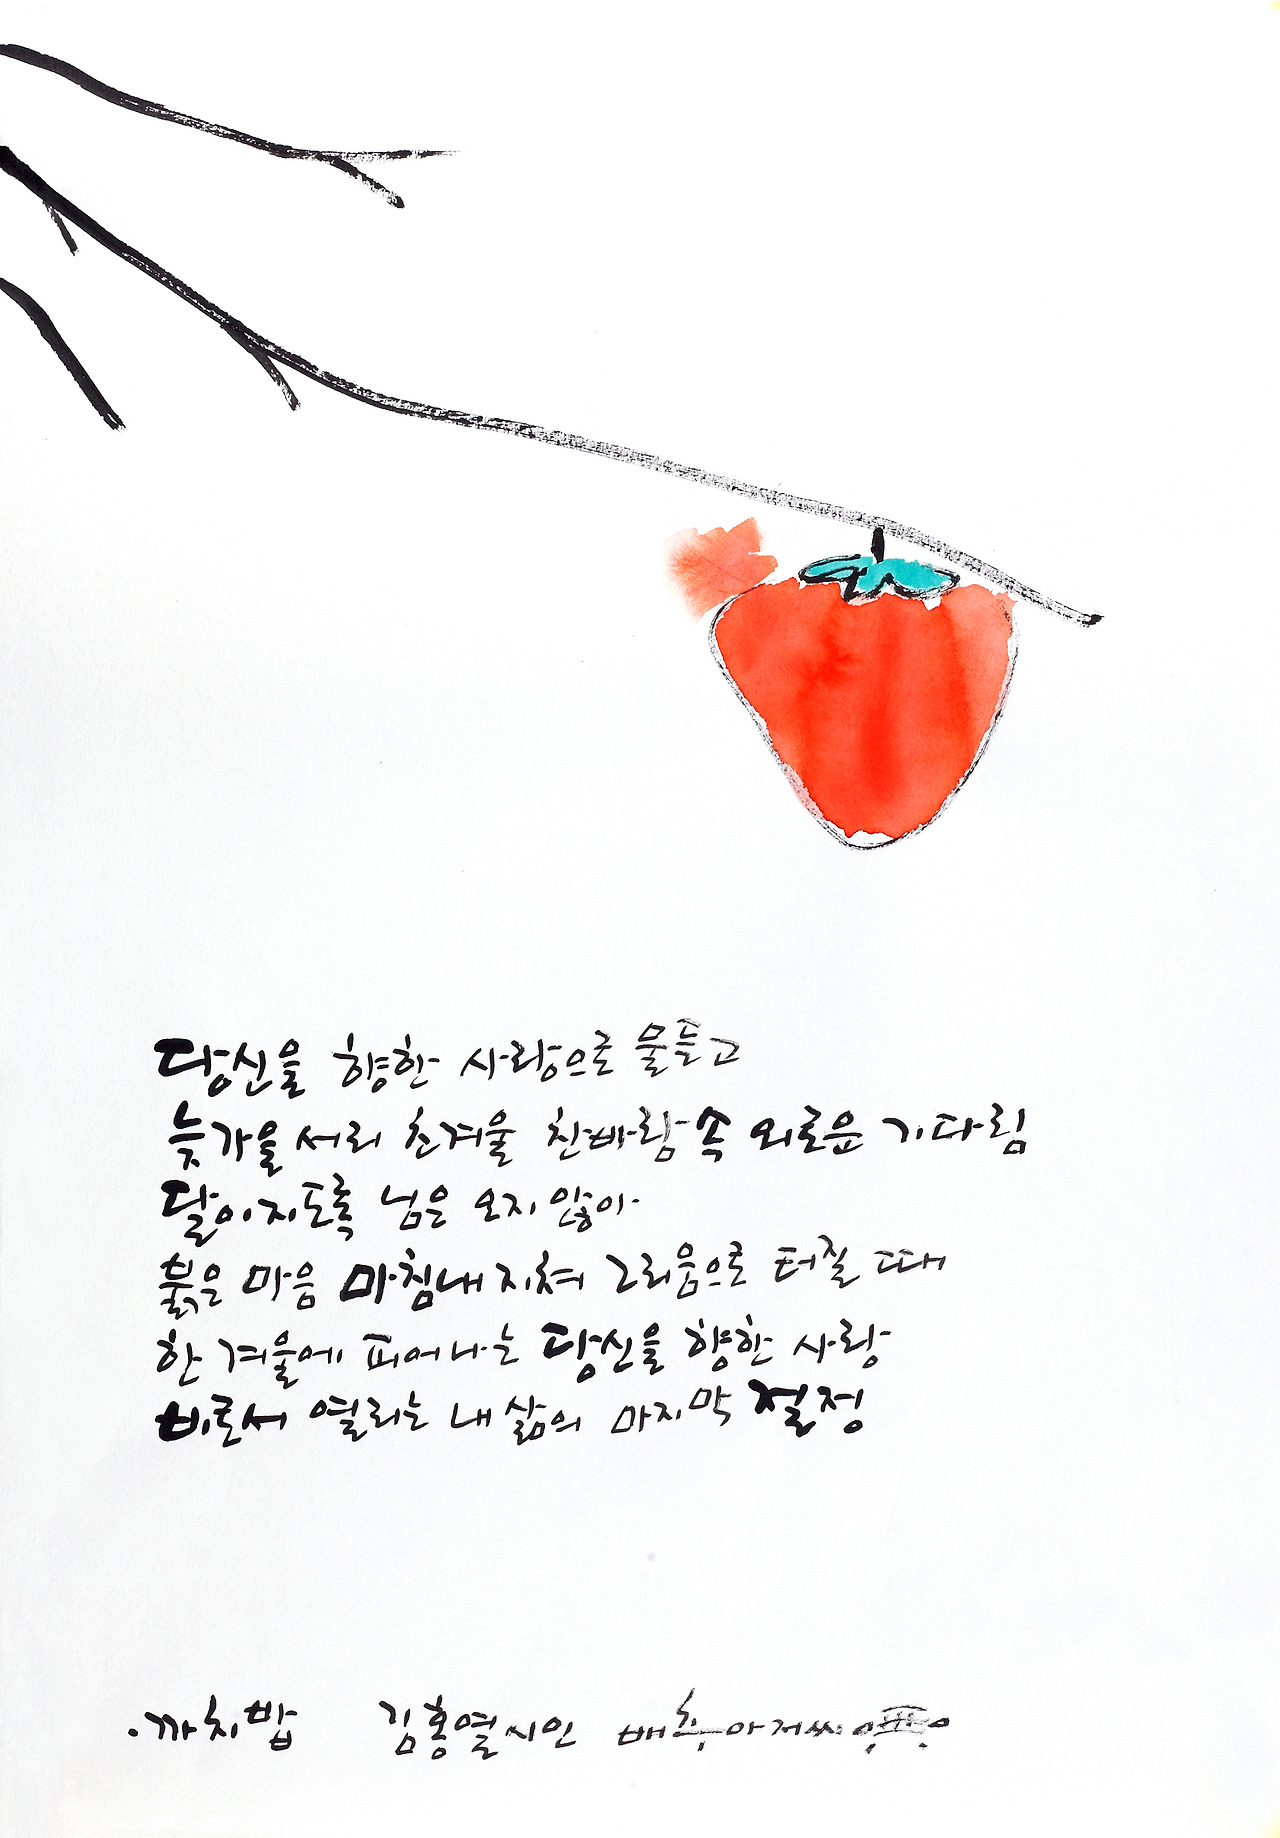 당신을 향한 사랑으로 물들고
늦가을 서리 찬겨울 찬바람 속 외로운 기다림
달이 지도록 님은 오지 않아
붉은 마음 마침내 지쳐 그리움으로 터질 때
한 겨울에 피어나는 당신을 향한 사랑
비로서 열리는 내 삶의 마지막 절정
·까치밥 김홍열시인 배추아저씨